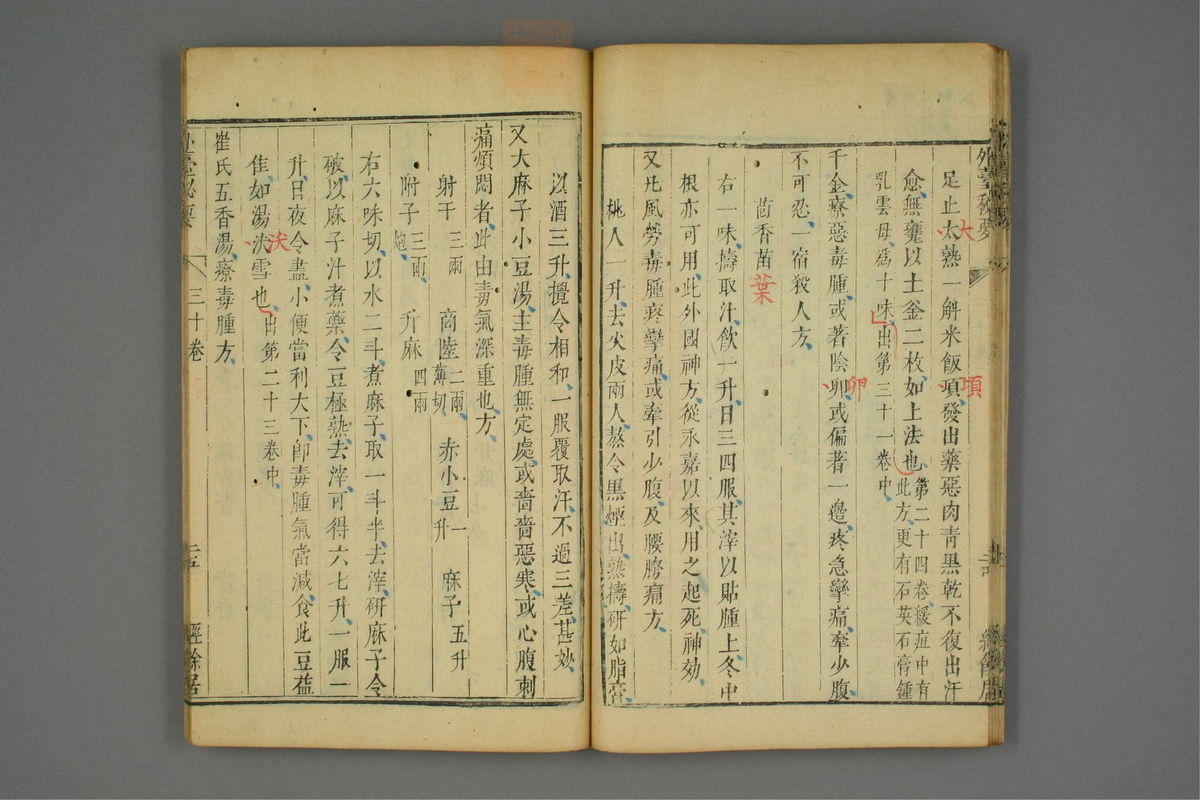 外臺秘要
足止太熟一斛米飯項發出藥惡肉青黑乾不復出汗
大
頃
愈無甕以土釜二枚如上法也第二十四卷緩疽中有此方更有石英石膏鍾
乳雲母為十味出第三十一卷中
千金療惡毒腫或著陰卵或偏著一邊疼急攣痛牽少腹
卵
不可忍一宿殺人方
茴香苗
葉
右一味擣取汁飲一升日三四服其滓以貼腫上冬中
根亦可用此外國神方從永嘉以來用之起死神効
又凡風勞毒腫疼攣痛或牽引少腹及腰胯痛方
桃人一升去尖皮兩人熬令黑煙出熱擣研如脂膏
以酒三升攪令相和一服覆取汗不過三差甚妙
又大麻子小豆湯主毒腫無定處或嗇嗇惡寒或心腹刺
痛煩悶者此由毒氣深重也方
射干三兩 商陸二兩薄切 赤小豆一升 麻子五升
附子三兩炮 升麻四兩
右六味切以水二斗煮麻子取一斗半去滓研麻子令
破以麻子汁煮藥令豆極熟去滓可得六七升一服一
升日夜令盡小便當利大下即毒腫氣當減食此豆益
佳如湯決雪也出第二十三卷中
沃
崔氏五香湯療毒腫方
三十卷
二五
經餘居